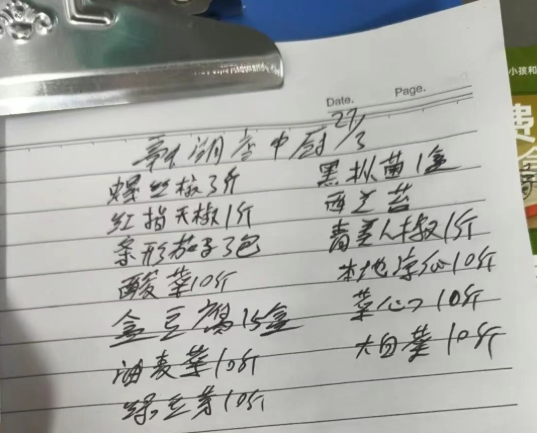 Date. 27/3
Page.
湖 中厨
螺丝椒3斤
红指天椒1斤
条形茄子3包
酸菜10斤
盒豆腐15盒
油麦菜10斤
绿豆芽10斤
黑枞菌1盒
青美人椒1斤
本地 10斤
菜心 10斤
大白菜10斤
小孩和
费